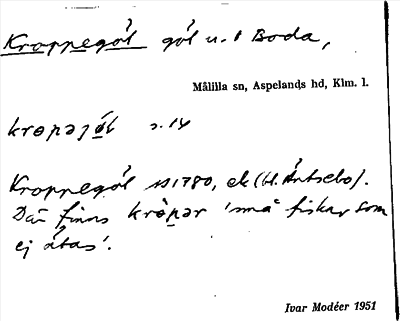 Kroppegöl göl u. 1 Boda,
Målilla sn, Aspelands hd, Klm. l.
krɵpəjø̀l s. 14
Kroppegöl 1780, ek (bl. Åntsebo).
Där finns krɵ̀pər 'små fiskar som
ej ätas'.
Ivar Modéer 1951